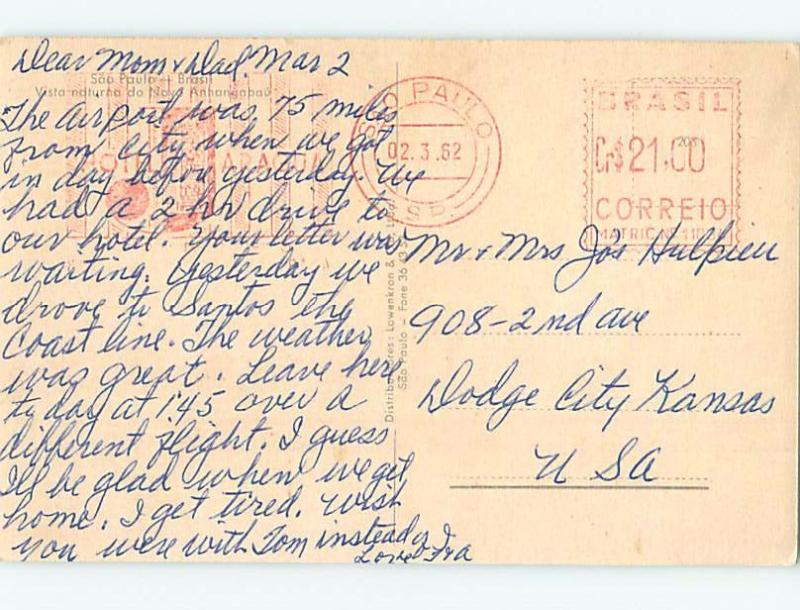 Dear Mom & Dad. Mar 2
São Paulo — Brasil
Vista noturna do Nova Anhangabaú
The airport was 75 miles
from city when we got
in day before yesterday. We
had a 2 hr drive to
our hotel. Your letter was
waiting. Yesterday we
drove to Santos the
coast line. The weather
was great. Leave here
today at 1:45 over a
different flight. I guess
I'll be glad when we get
home. I get tired. Wish
you were with Tom instead of I
Love Fra
SÃO PAULO
02.3.62
S.P.
BRASIL
CR$ 21,00
CORREIO
MATRIC Nº
Mr & Mrs Jos Hulpieu
908-2nd ave
Dodge City Kansas
U S A
Distribuidores: Lowenkron &
São Paulo — Fone 36